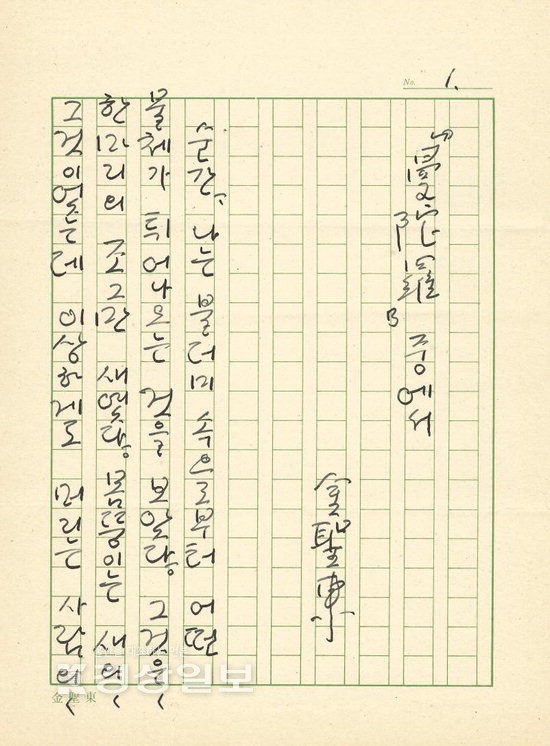 No. 1.
"曼陀羅" 중에서
金聖東
순간, 나는 불더미 속으로부터 어떤
물체가 튀어나오는 것을 보았다. 그것은
한 마리의 조그만 새였다. 몸뚱이는 새의
그것이었는데 이상하게도 머리는 사람의
경상일보
金聖東